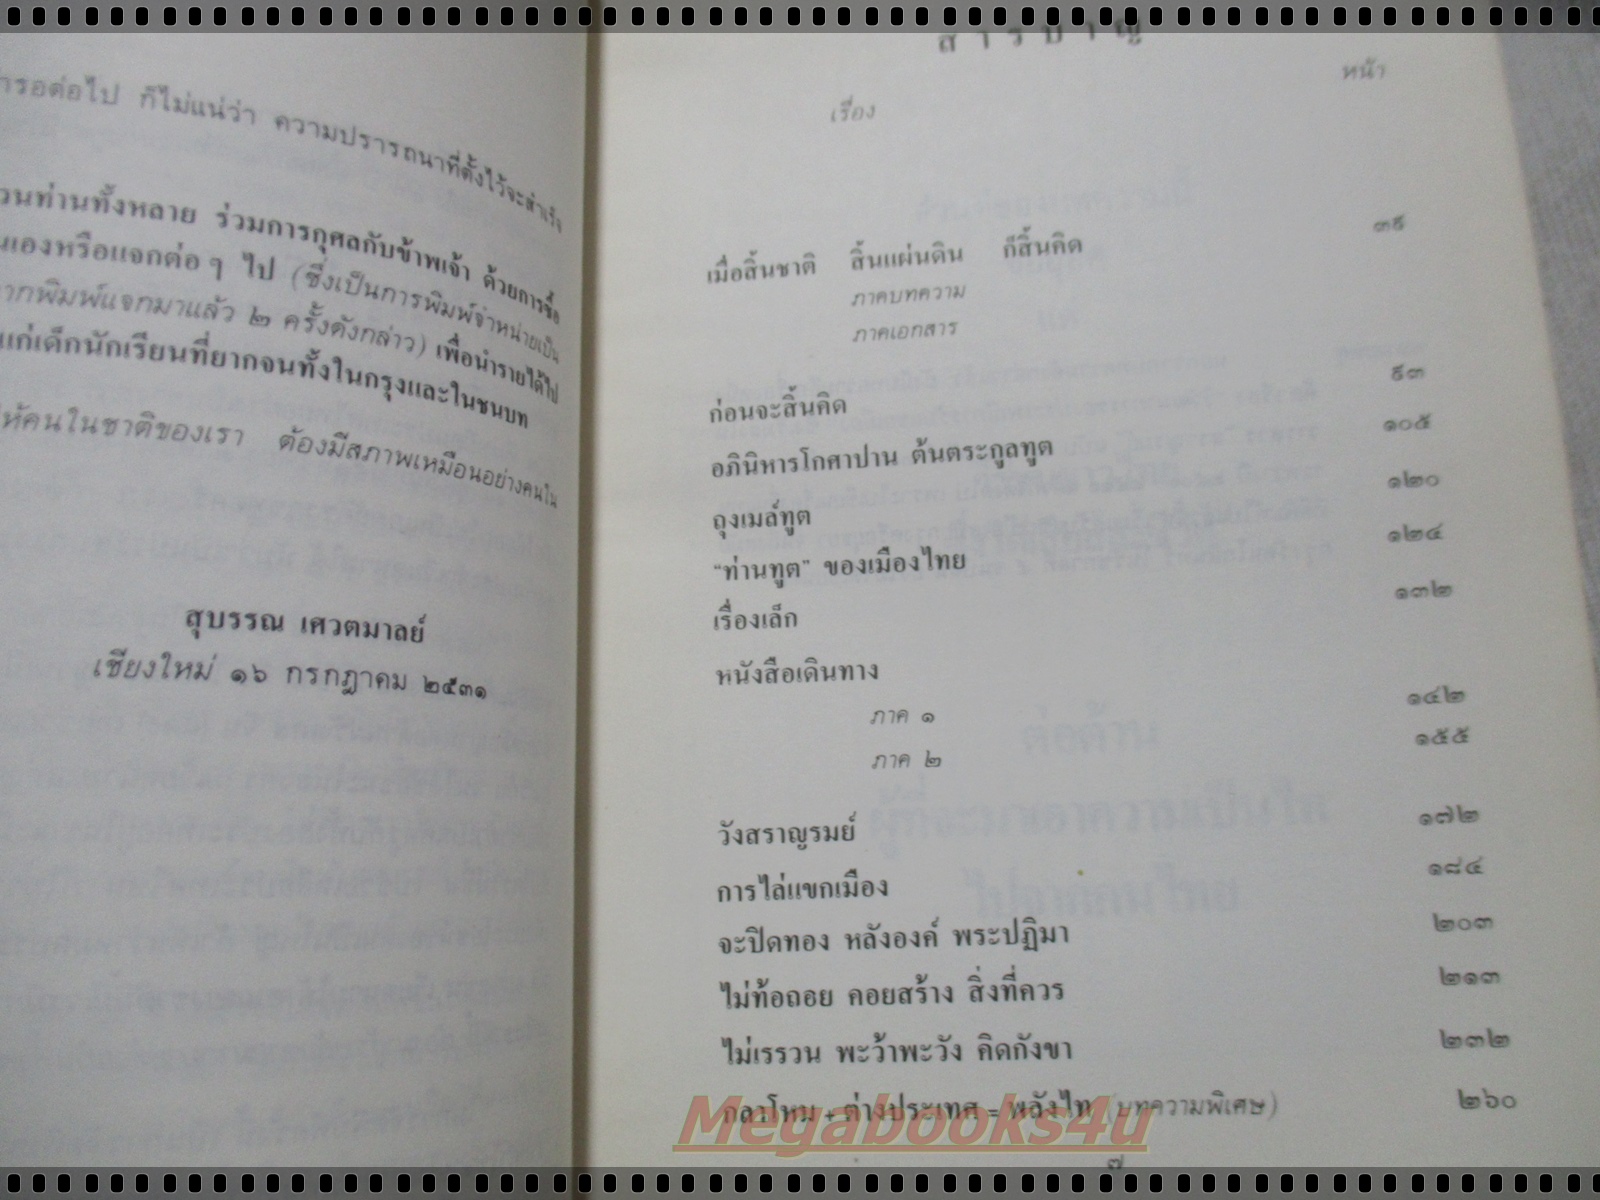 รอต่อไป ก็ไม่แน่ว่า ความปรารถนาที่ตั้งไว้จะสำเร็จ
วนท่านทั้งหลาย ร่วมการกุศลกับข้าพเจ้า ด้วยการซื้อ
นเองหรือแจกต่อๆ ไป (ซึ่งเป็นการพิมพ์จำหน่ายเป็น
ากพิมพ์แจกมาแล้ว ๒ ครั้งดังกล่าว) เพื่อนำรายได้ไป
แก่เด็กนักเรียนที่ยากจนทั้งในกรุงและในชนบท
ห้คนในชาติของเรา ต้องมีสภาพเหมือนอย่างคนใน
สุบรรณ เศวตมาลย์
เชียงใหม่ ๑๖ กรกฎาคม ๒๕๓๑
สารบาญ
เรื่อง หน้า
เมื่อสิ้นชาติ สิ้นแผ่นดิน ก็สิ้นคิด ๓๕
ภาคบทความ
ภาคเอกสาร
ก่อนจะสิ้นคิด ๕๓
อภินิหารโกศาปาน ต้นตระกูลทูต ๑๐๕
ถุงเมล์ทูต ๑๒๐
“ท่านทูต” ของเมืองไทย ๑๒๔
เรื่องเล็ก ๑๓๒
หนังสือเดินทาง
ภาค ๑ ๑๔๒
ภาค ๒ ๑๕๕
วังสราญรมย์ ๑๗๒
การไล่แขกเมือง ๑๘๔
จะปิดทอง หลังองค์ พระปฏิมา ๒๐๓
ไม่ท้อถอย คอยสร้าง สิ่งที่ควร ๒๑๓
ไม่เรรวน พะว้าพะวัง คิดกังขา ๒๓๒
กลาโหม + ต่างประเทศ = พลังไท (บทความพิเศษ) ๒๖๐
๗
Megabooks4u